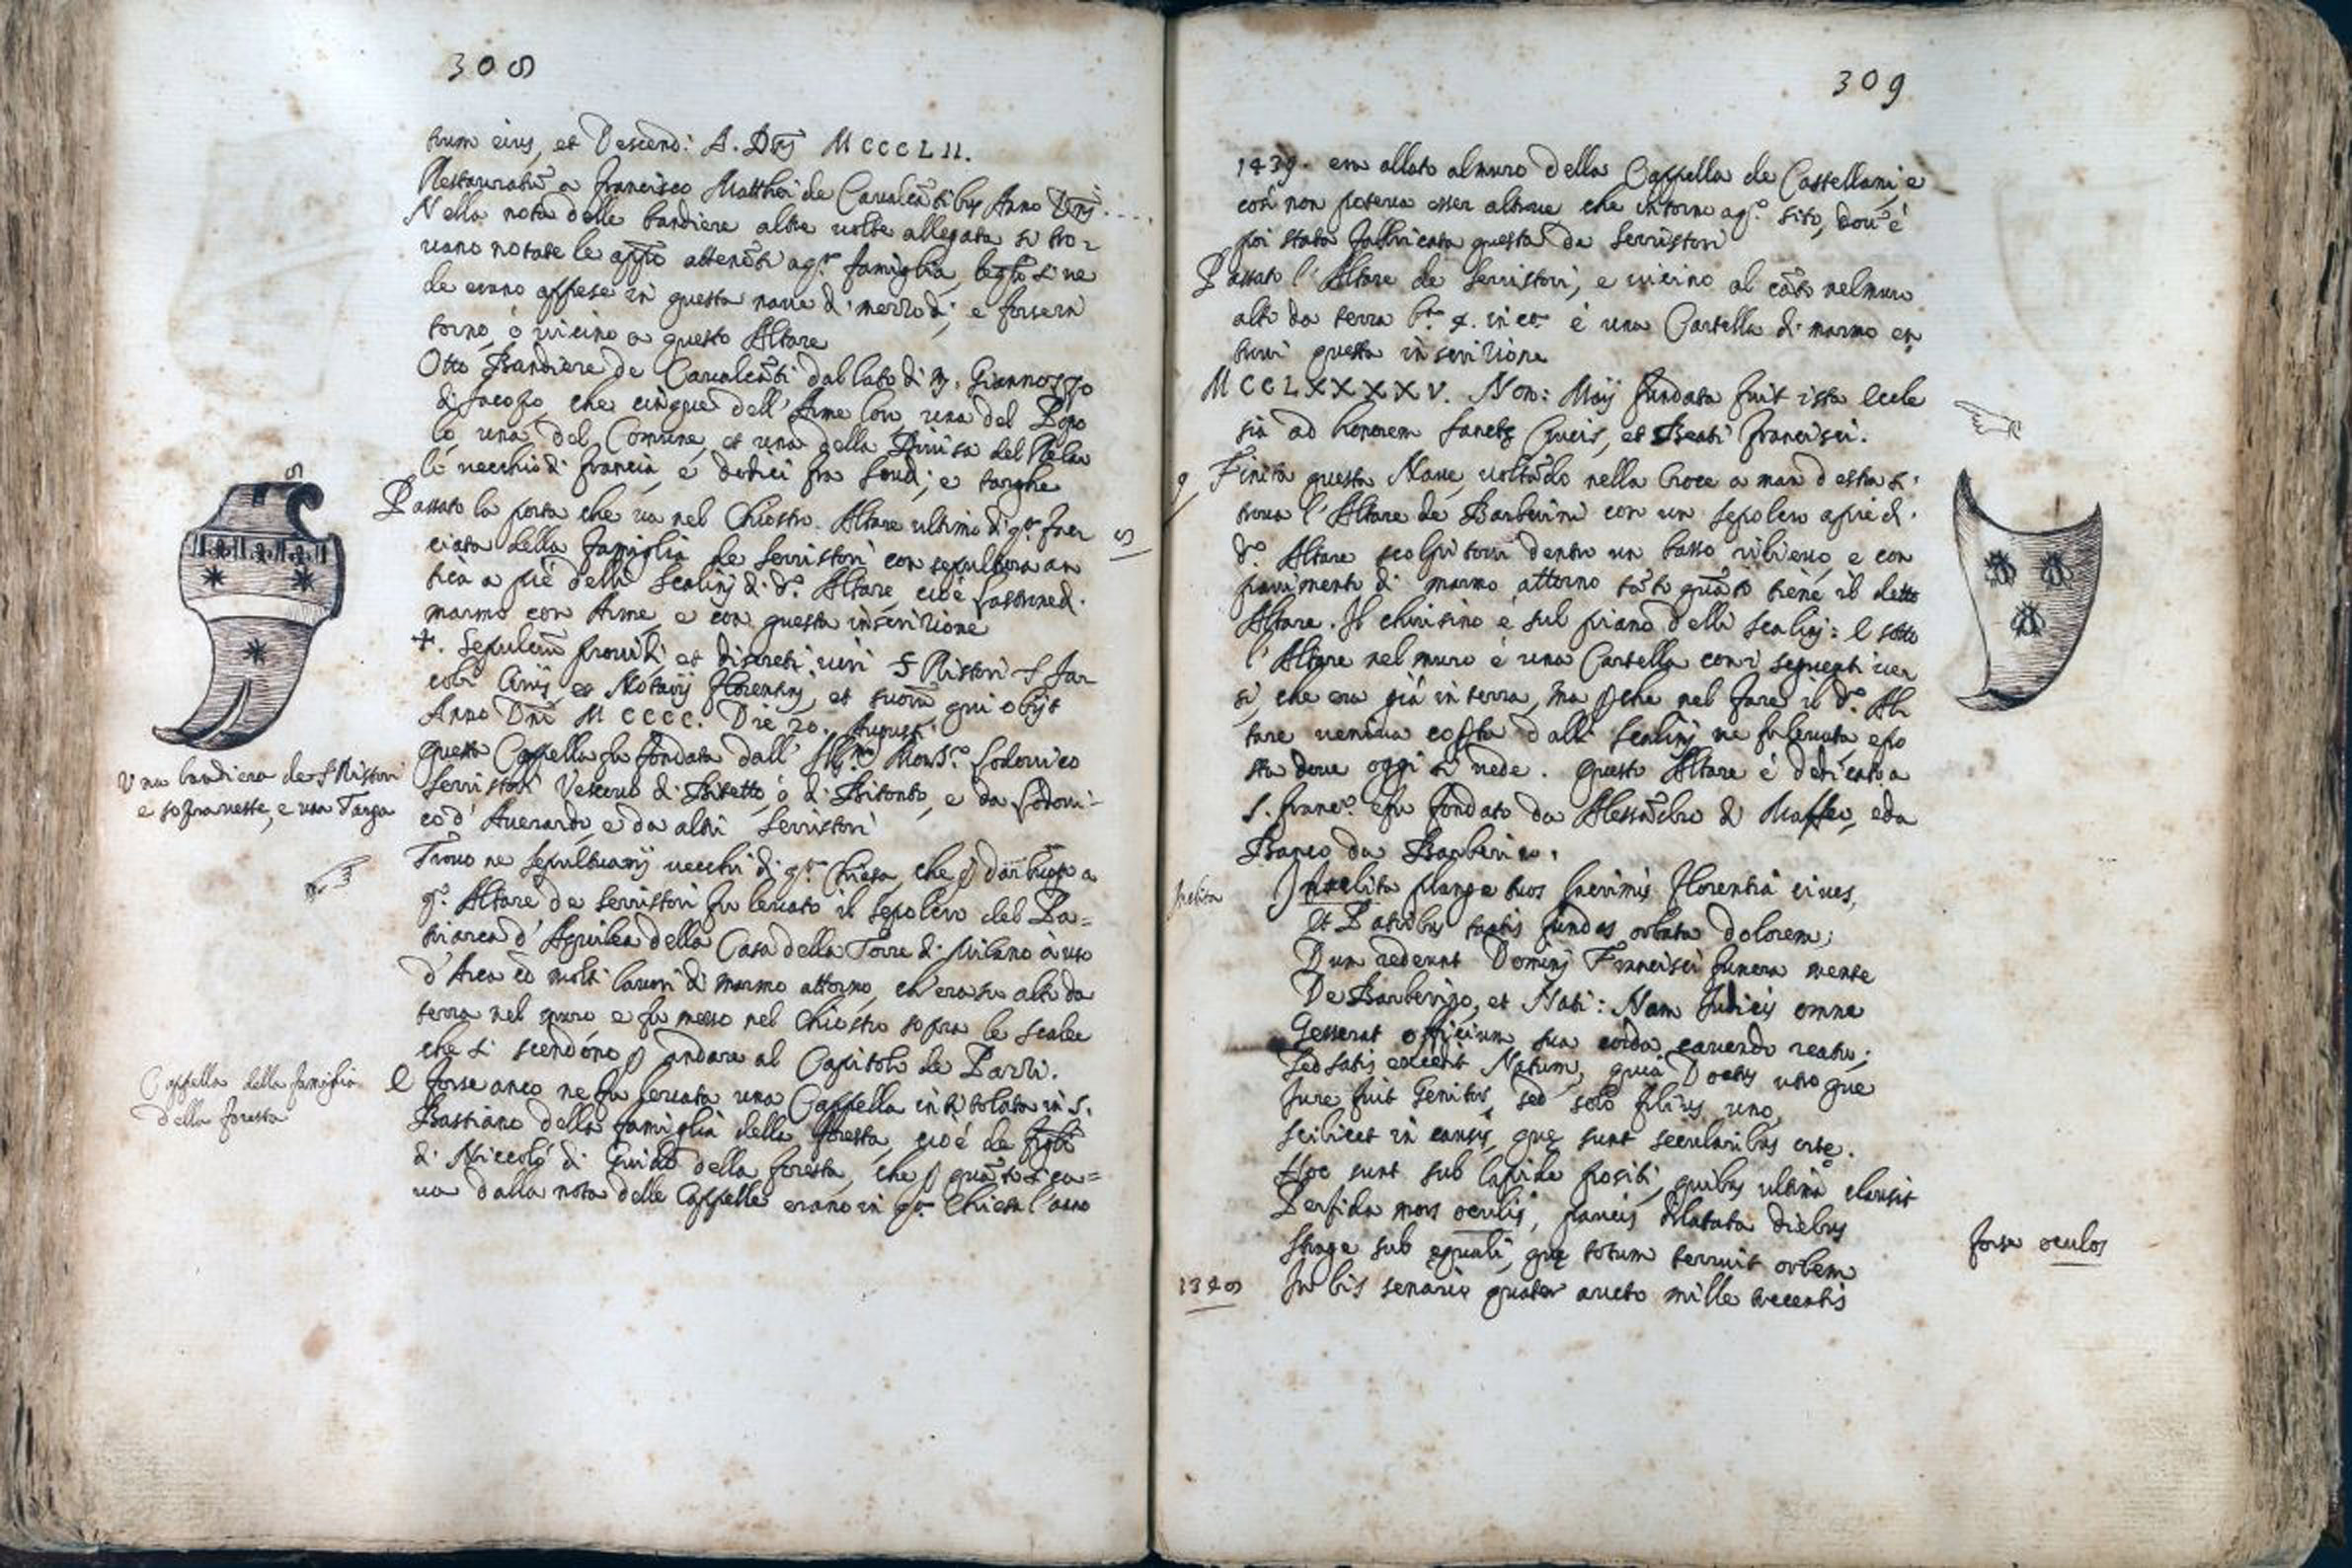 308
trum eius, et Descend: A. Dñj MCCCLII.
Restauratũ a Francisco Matthei de Caualcãtibus Anno Dñj....
Nella nota delle bandiere altre uolte allegata si tro=
uano notate le app.o attenẽti a q.ta famiglia,
de erano appese in questa naue di mezzodì, e forse in
torno, ò uicino a questo Altare
Otto Bandiere de Caualcãti dal lato di M. Giannozzo
di Jacopo, che cinque dell' Arme loro, una del Popo
lo, una del Comune, et una della Diuisa del Re
vecchio di Francia, e dodici fra Scudi, e targhe
Passato la porta che ua nel Chiostro. Altare ultimo di q.ta Fac 8
ciata della Famiglia de Serristori con sepultura an
tica a piè delli Scalinj di d.o Altare, cioè lastrone di
marmo con Arme, e con questa inscrizione
+. Sepulcrũ prouidi, et discreti uiri S Ristori S Jac
cobi Ciuij et Notarij Florentinj, et suorũ qui obijt
Anno Dñi MCCCC. Die 20. Augusti.
questa Cappella fu fondata dall' Ill.mo Mons.r Lodouico
Serristori Vescouo di Bitetto, ò di Bitonto, e da Lodoui=
co d' Auerardo, e da altri Serristori
Trouo ne sepultuarij uecchi di q.ta Chiesa, che p dar luogo a
q.o Altare de Serristori fu leuato il sepolcro del Pa=
triarca d' Aquilea della Casa della Torre di Milano à uso
d' Arca cõ molti lauori di marmo attorno, ch' era su alto da
terra nel muro e fu messo nel Chiostro sopra le scalee
che si scendono p andare al Capitolo de Pazzi.
E forse anco ne fu leuata una Cappella intitolata in S.
Bastiano della famiglia della foresta, cioè de figli
di Niccolò di Guido della foresta, che p quãto si ca=
ua dalla nota delle Cappelle erano in q.ta Chiesa l'anno
8
Una bandiera de S Ristori
e soprauesta, e una Targa
Cappella della famiglia
della foresta
309
1439. era allato al muro della Cappella de Castellani, e
così non poteua esser altroue che intorno a q.o sito, dou'è
poi stata fabbricata questa de Serristori
Passato l' Altare de Serristori, e uicino al cãto nel muro
alto da terra b.a 4. in c.a è una Cartella di marmo en
troui questa inscrizione
MCCLXXXXV. Non: Maij fundata fuit ista Eccle
sia ad honorem Sanctę Crucis, et Beati Francisci.
9 Finita questa Naue, uoltãdo nella Croce a man destra si
troua l' Altare de Barberini con un sepolcro a piè di
d.o Altare scolpitoui dentro un basso rilieuo, e con
pauimenti di marmo attorno tãto quãto tiene il detto
Altare. Il chiusino è sul piano delli scalinj: E sotto
l' Altare nel muro è una Cartella con i seguenti uer
si, che era già in terra, ma p che nel fare il d.o Al
tare ueniua coperta dalli scalinj ne fu leuata, e po
sta doue oggi si uede. Questo Altare è dedicato a
S. Franc.o e fu fondato da Alessãdro di Maffeo, e da
Banco da Barberino.
Inclita
Inclita plange tuos lacrimis Florentia ciues,
Et Patribus tantis fundas orbata dolorem;
Dum redeunt Dominj Francisci funera mente
De Barberino, et Nati: Nam Judicis omne
Gesserat officium sua corda cauendo reatu;
Sed satis excedit Natum, quia Doctus utroque
Jure fuit Genitor, sed solo filius uno,
Scilicet in causis, quę sunt secularibus ortę.
Hoc sunt sub lapide positi, quibus ultima clausit
Perfida mors oculis, paucis dilatata diebus
Strage sub ęquali, quę totum terruit orbem
1348 In bis senario quater aucto mille trecentis
forse oculos